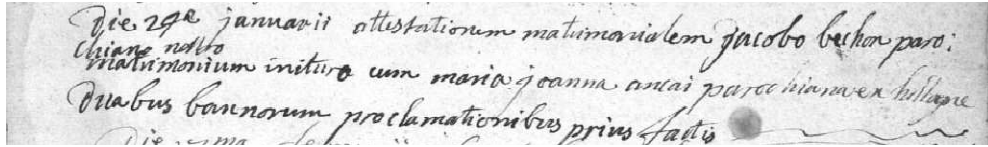 Die 29ª januarii attestationem matrimonialem jacobo bechon paro:
chiano nostro
matrimonium inituro cum maria joanna antai parochiana ex
duabus bannorum proclamationibus prius factis
Die